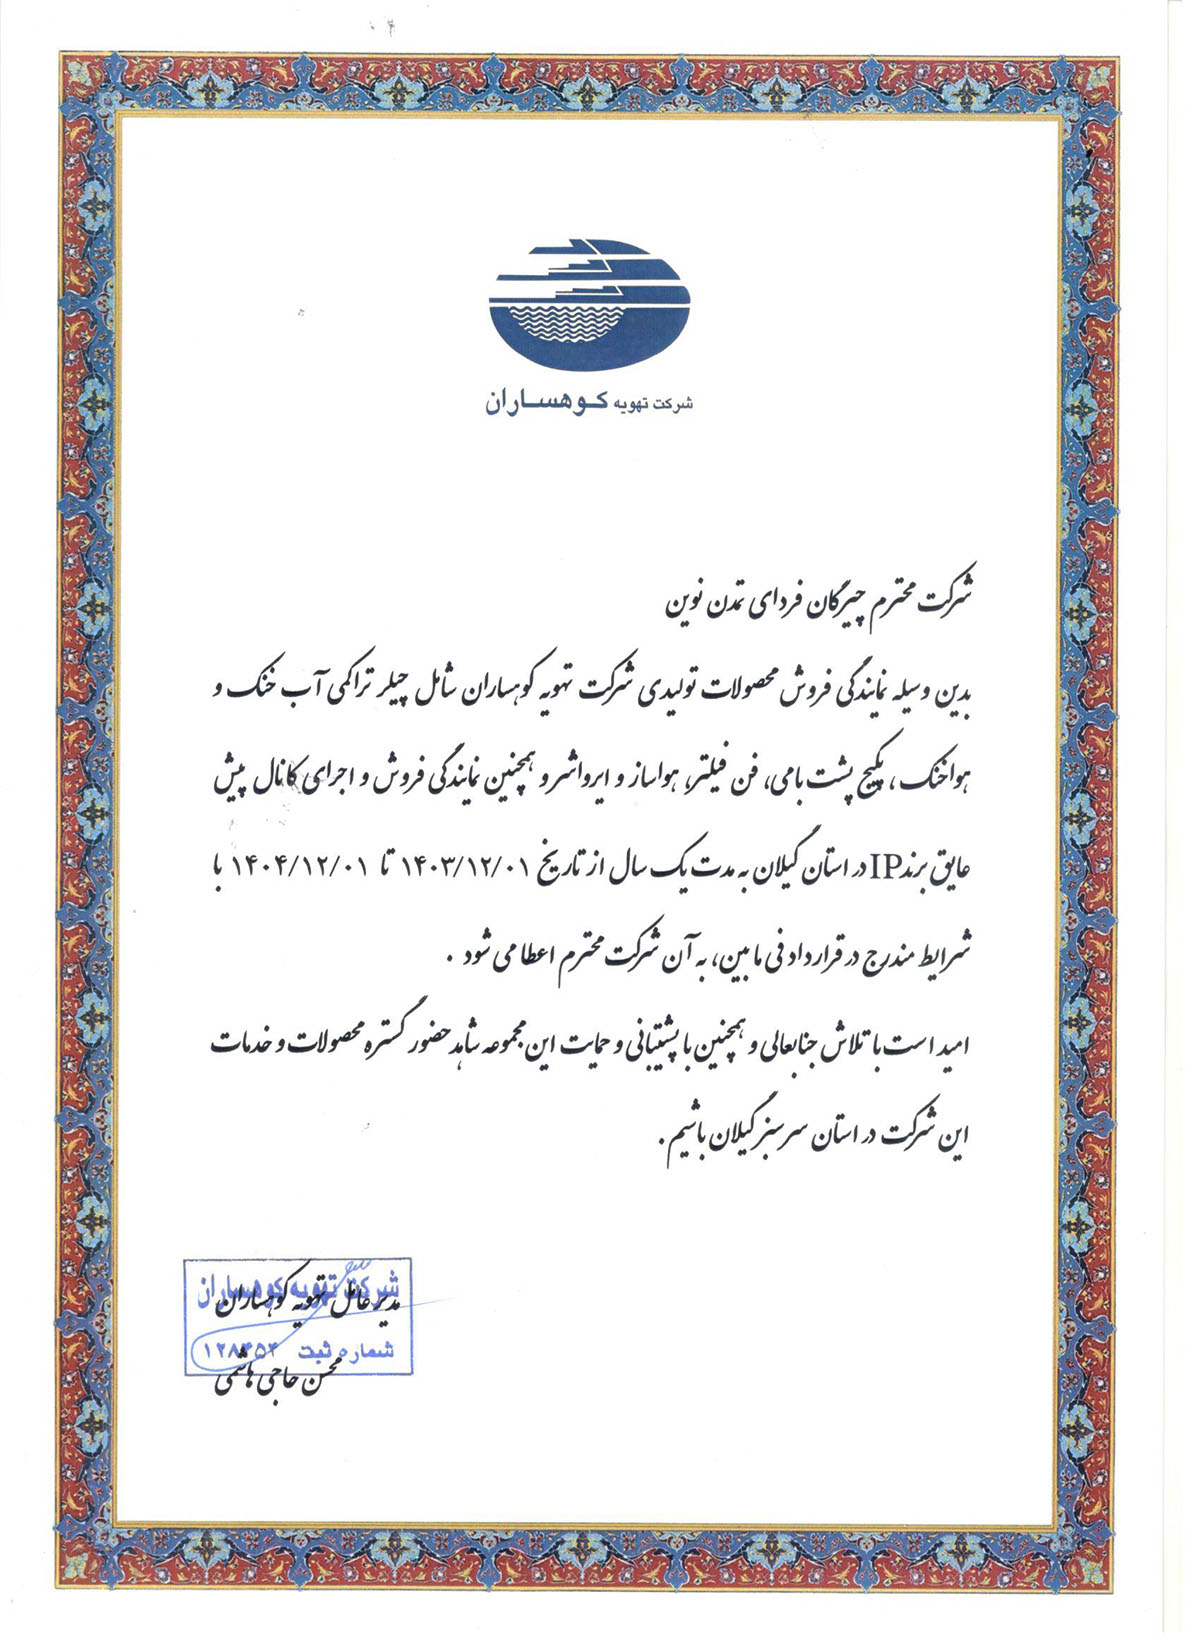 شرکت تهویه کوهساران
شرکت محترم چیرگان فردای تمدن نوین
بدین وسیله نمایندگی فروش محصولات تولیدی شرکت تهویه کوهساران شامل چیلر تراکمی آب خنک و
هواخنک ، پکیج پشت بامی، فن فیلتر، هواساز و ایرواشر و همچنین نمایندگی فروش و اجرای کانال پیش
عایق برند IP در استان گیلان به مدت یک سال از تاریخ ۱۴۰۳/۱۲/۰۱ تا ۱۴۰۴/۱۲/۰۱ با
شرایط مندرج در قرارداد فی مابین، به آن شرکت محترم اعطا می شود .
امید است با تلاش جنابعالی و همچنین با پشتیبانی و حمایت این مجموعه شاهد حضور گسترده محصولات و خدمات
این شرکت در استان سرسبز گیلان باشیم .
شرکت تهویه کوهساران
مدیرعامل تهویه کوهساران
شماره ثبت
محسن حاجی هاشمی